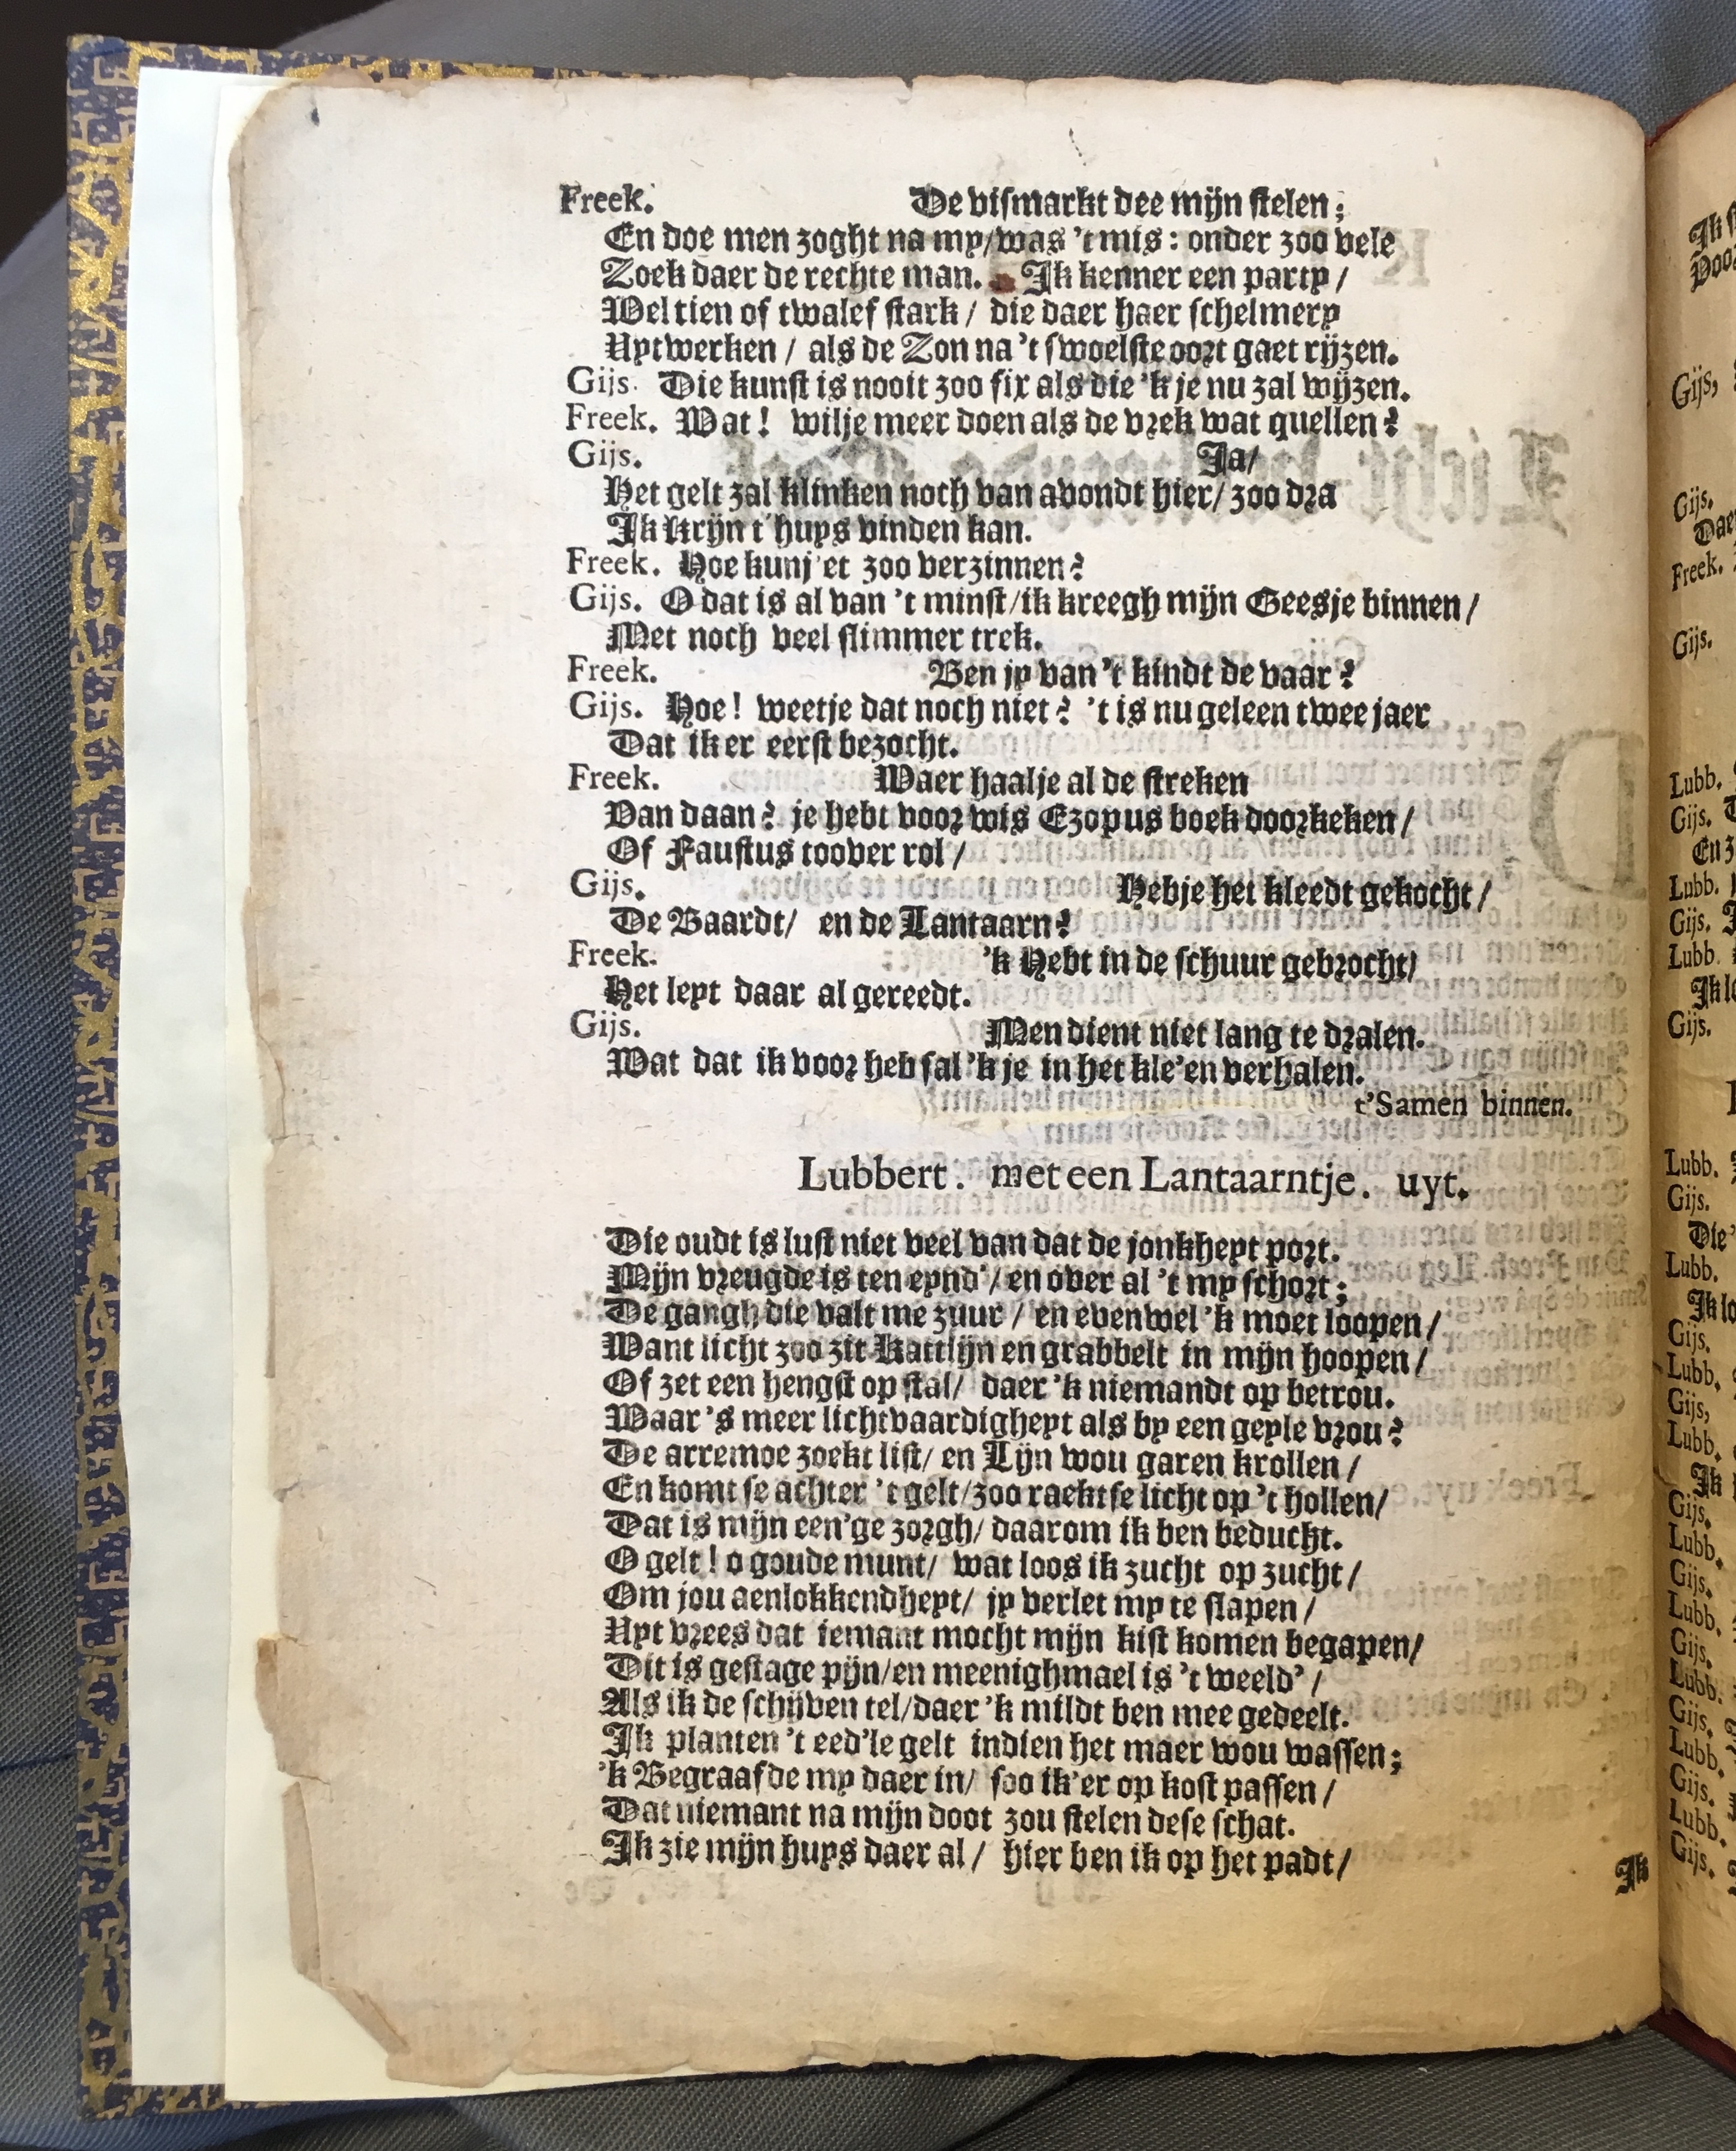 Freek. De vismarkt dee mijn stelen;
En doe men zoght na my/was 't mis: onder zoo vele
Zoek daer de rechte man. Ik kenner een party/
Wel tien of twalef stark/ die daer haer schelmery
Uytwerken/ als de Zon na 't swoelste oort gaet rijzen.
Gijs. Die kunst is nooit zoo fix als die 'k je nu zal wijzen.
Freek. Wat! wilje meer doen als de vrek wat quellen?
Gijs. Ja/
Het gelt zal klinken noch van avondt hier/ zoo dra
Ik Krijn t'huys vinden kan.
Freek. Hoe kunj'et zoo verzinnen?
Gijs. O dat is al van 't minst/ik kreegh mijn Geesje binnen/
Met noch veel slimmer trek.
Freek. Ben jy van 't kindt de vaar?
Gijs. Hoe! weetje dat noch niet? 't is nu geleen twee jaer
Dat ik er eerst bezocht.
Freek. Waer haalje al de streken
Van daan? je hebt voor wis Ezopus boek doorkeken/
Of Faustus toover rol/
Gijs. Hebje het kleedt gekocht/
De Baardt/ en de Lantaarn?
Freek. 'k Hebt in de schuur gebrocht/
Het leyt daar al gereedt.
Gijs. Men dient niet lang te dralen.
Wat dat ik voor heb sal 'k je in het kle'en verhalen.
t'Samen binnen.
Lubbert. met een Lantaarntje. uyt.
Die oudt is lust niet veel van dat de jonkheyt port.
Mijn vreugde is ten eynd'/ en over al 't my schort;
De gangh die valt me zuur/ en evenwel 'k moet loopen/
Want licht zoo zit Kattlijn en grabbelt in mijn hoopen/
Of zet een hengst op stal/ daer 'k niemandt op betrou.
Waar 's meer lichtvaardigheyt als by een geyle vrou?
De arremoe zoekt list/ en Lijn wou garen krollen/
En komt se achter 't gelt/zoo raekt se licht op 't hollen/
Dat is mijn een'ge zorgh/ daarom ik ben beducht.
O gelt! o goude munt/ wat loos ik zucht op zucht/
Om jou aenlokkendheyt/ jy verlet my te slapen/
Uyt vrees dat iemant mocht mijn kist komen begapen/
Dit is gestage pijn/en meenighmael is 't weeld'/
Als ik de schijven tel/daer 'k mildt ben mee gedeelt.
Ik planten 't eed'le gelt indien het maer wou wassen;
'k Begraafde my daer in/ soo ik'er op kost passen/
Dat niemant na mijn doot zou stelen dese schat.
Ik zie mijn huys daer al/ hier ben ik op het padt/
Ik